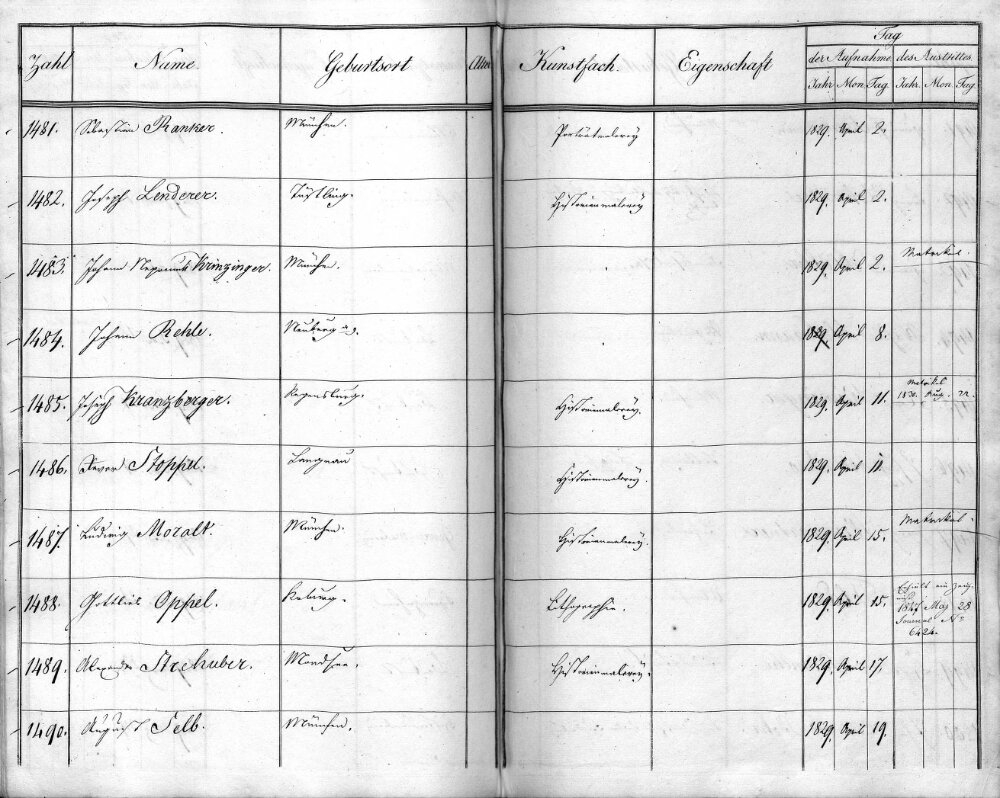 Tag
Zahl Name Geburtsort Alter Kunstfach. Eigenschaft der Aufnahme des Austrittes
Jahr Mon. Tag Jahr. Mon. Tag
1481. Sebastian Ranker. München. Porträtmalerey 1829. April 2.
1482. Joseph Lenderer. Tüßling. Historienmalerey 1829. April 2.
1483. Johann Nepomuk Krinzinger. München. 1829. April 2. Matrikel.
1484. Johann Rehle. Neuburg a/D. 1829. April 8.
1485. Joseph Kranzberger. Regensburg. Historienmalerey. 1829. April 11. Matrikel
1830. Aug. 22.
1486. Xaver Stoppel. Langnau Historienmalerey. 1829. April 11.
1487. Ludwig Moralt. München. Historienmalerey. 1829. April 15. Matrikel.
1488. Gottlieb Oppel. Koburg. Lithographie. 1829. April 15. Erhielt ein Zeug-
niß
1847 May 28
Journal No
6424.
1489. Alexander Strehuber. Mondsee. Historienmalerey. 1829. April 17.
1490. August Selb. München. 1829. April 19.